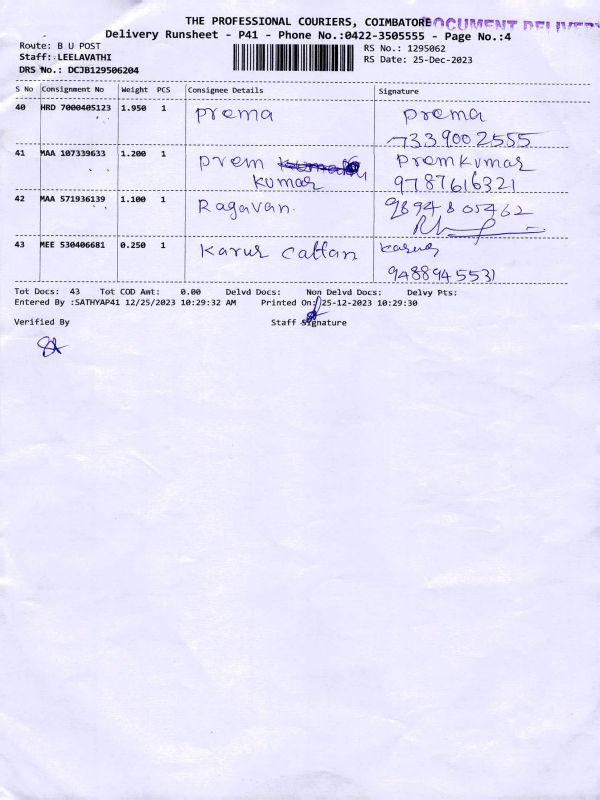 THE PROFESSIONAL COURIERS, COIMBATORE DOCUMENT DELIVERY
Delivery Runsheet - P41 - Phone No.:0422-3505555 - Page No.:4
Route: B U POST RS No.: 1295062
Staff: LEELAVATHI RS Date: 25-Dec-2023
DRS No.: DCJB129506204
S No Consignment No Weight PCS Consignee Details Signature
40 HRD 7000405123 1.950 1 prema prema
7339002555
41 MAA 107339633 1.200 1 prem premkumar
kumar 9787616321
42 MAA 571936139 1.100 1 Ragavan. 9894805462
43 MEE 530406681 0.250 1 Karur Cattan Karur
9488945531
Tot Docs: 43 Tot COD Amt: 0.00 Delvd Docs: Non Delvd Docs: Delvy Pts:
Entered By :SATHYAP41 12/25/2023 10:29:32 AM Printed On: 25-12-2023 10:29:30
Verified By Staff Signature